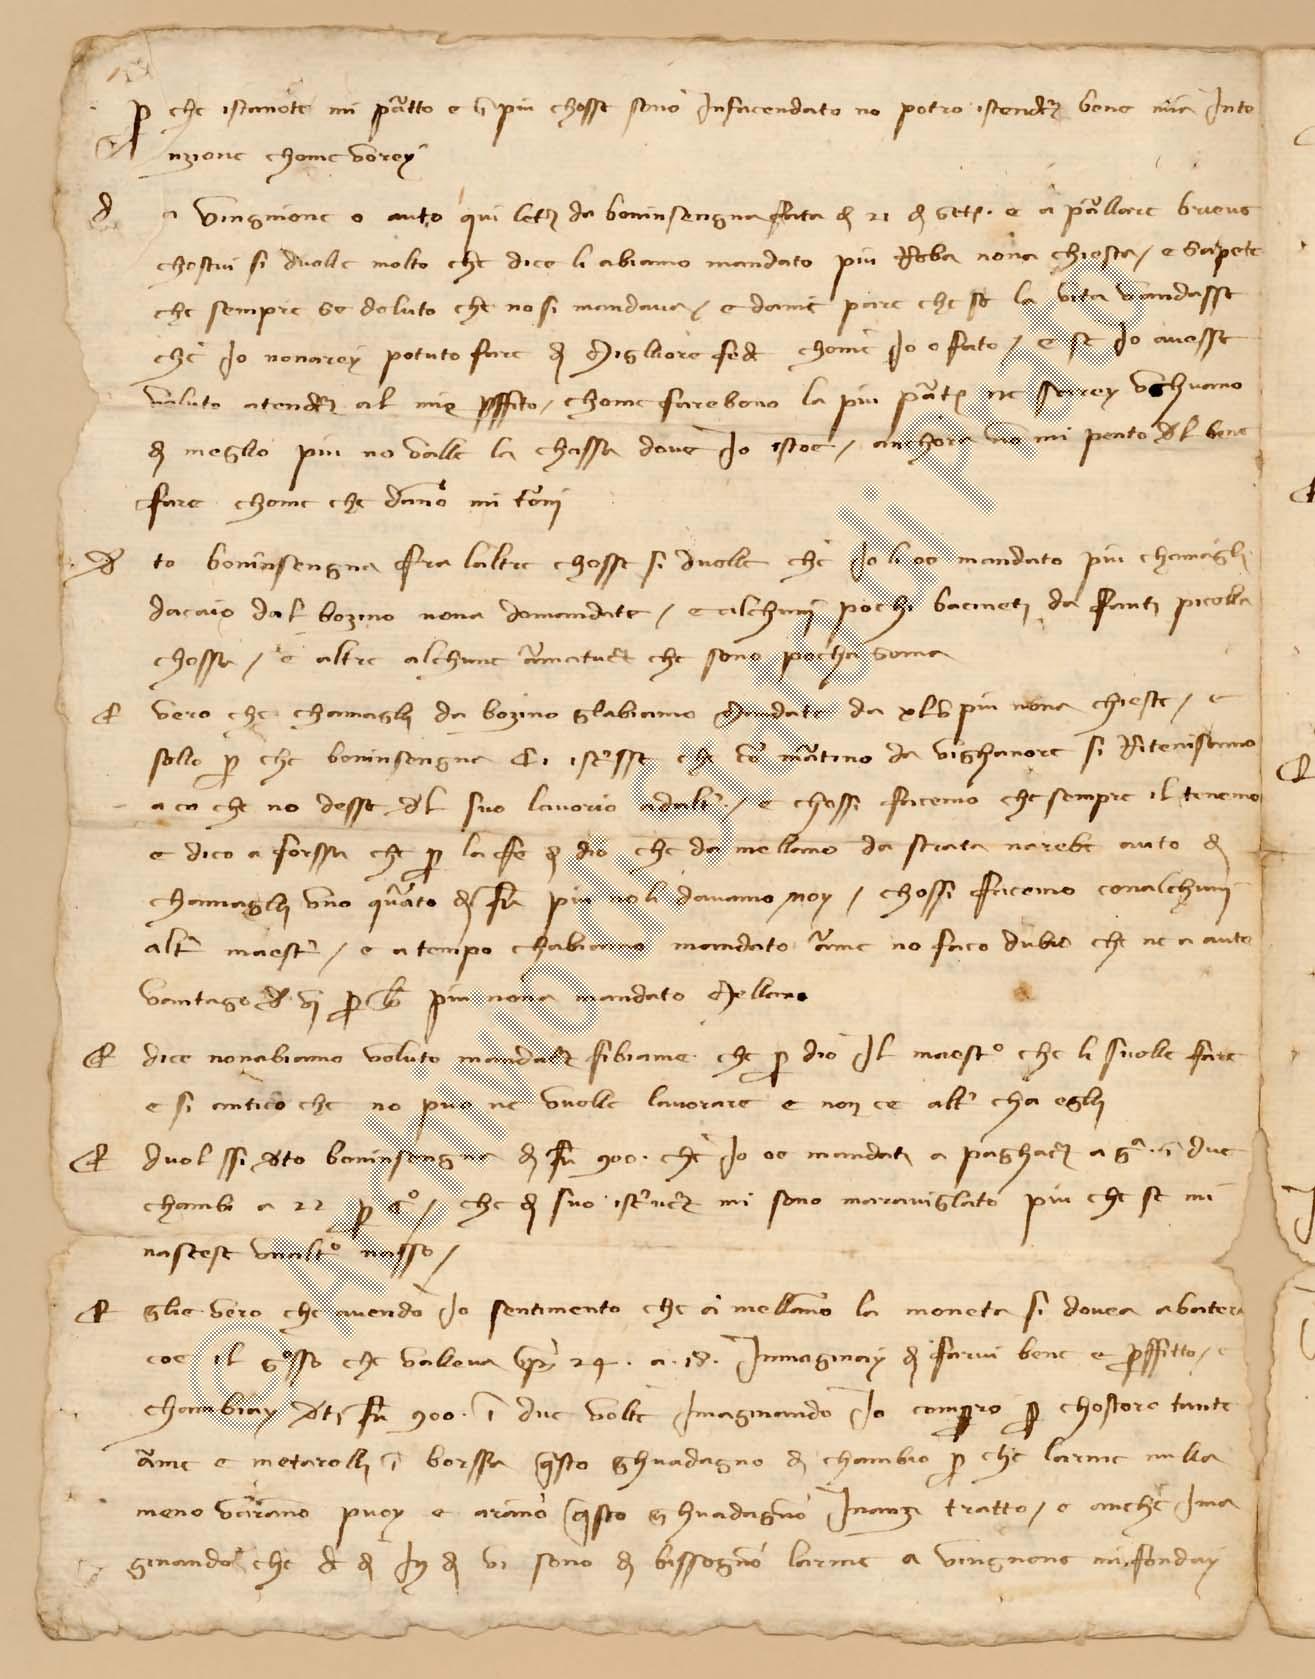 p che istanote mi parto e in piu chosse sono Infacendato no potro istender bene mia Inte
nzione chome vorey
d a vingnione o auto qui letr da boninsengna fata di 21 di setr. e a parllare brieve
chostui si duolle molto che dice li abiamo mandato piu Roba nona chiesta / e sapete
che sempre se doluto che no si mandava / e dame pare che se la vita vandasse
che Io nonarey potuto fare di Migliore fede chome Io o fato / e se Io avesse
voluto atender al mio proffito / chome farebono la piu parte ne serrey vechuamo
di meglio piu no valle la chassa dove Io istoe / anchora no mi pento del bene
fare chome che danno mi torni
De to boninsengna fra laltre chosse si duolle che Io li oe mandato piu chamagli
dacaio dal bozino nona domandate / e alchuni pochi bacineti da fanti picolla
chossa / e altre alchune armature che sono pocha soma
E vero che chamagli da bozino glabiamo Mandate da xlv piu nona chieste / e
sollo p che boninsengna Ci iscrisse che con martino da vighanore si Ritenissimo
a ca che no desse del suo lavorio adaltri / e chossi facemo che sempre il tenemo
e dico a forssa che p la fe di dio che da mellano da strata narebe auto di
chamagli uno quarto di fr piu noli davamo noy / chossi facemo conalchuni
altri maestri / e a tempo chabiamo mandato arme no faco dubio che ne a auto
vantago de vj p C piu nona mandato Mellano
E dice nonabiamo voluto mandare fibiame che p dio Il maestro che li suolle fare
e si antico che no puo ne vuolle lavorare e non ce altri cha egli
E duol ssi deto boninsengna di fr 900. che Io oe mandati a paghare a ga. in due
chambi a 22 p co / che di suo iscrivere mi sono maraviglato piu che se mi
nascese unaltro nasso /
E glie vero che avendo Io sentimento che a mellano la moneta si dovea abatere
coe il grosso che valleva Inpr 24. a. 18. Inmaginay di farvi bene e proffitto / e
chambiay deti fr 900. in due volte Imaginando Io compero p chostoro tante
arme e metarolli in borssa questo ghuadagno di chambio p che larme nulla
meno veranno puoy e arano questo ghuadagno Inanzi tratto / e anche Ima
ginando che di di In di vi sono di bissogno larme a vingnone mi fonday